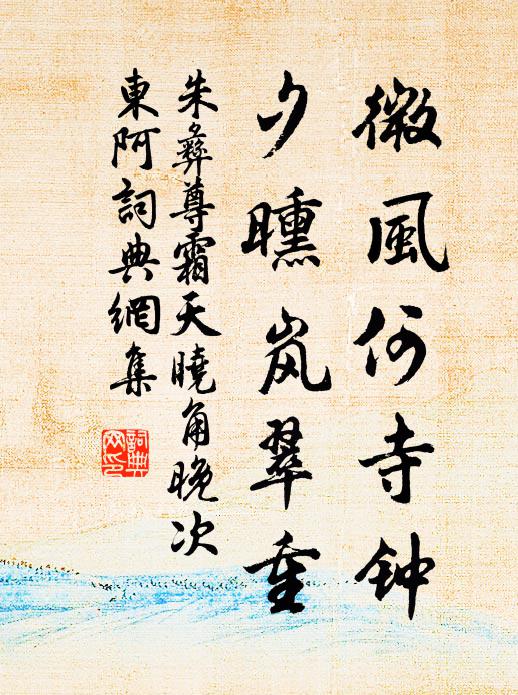 微風何寺钟
夕曛岚翠重
朱彝尊霜天曉角晚次
東阿詞典網集
詞典